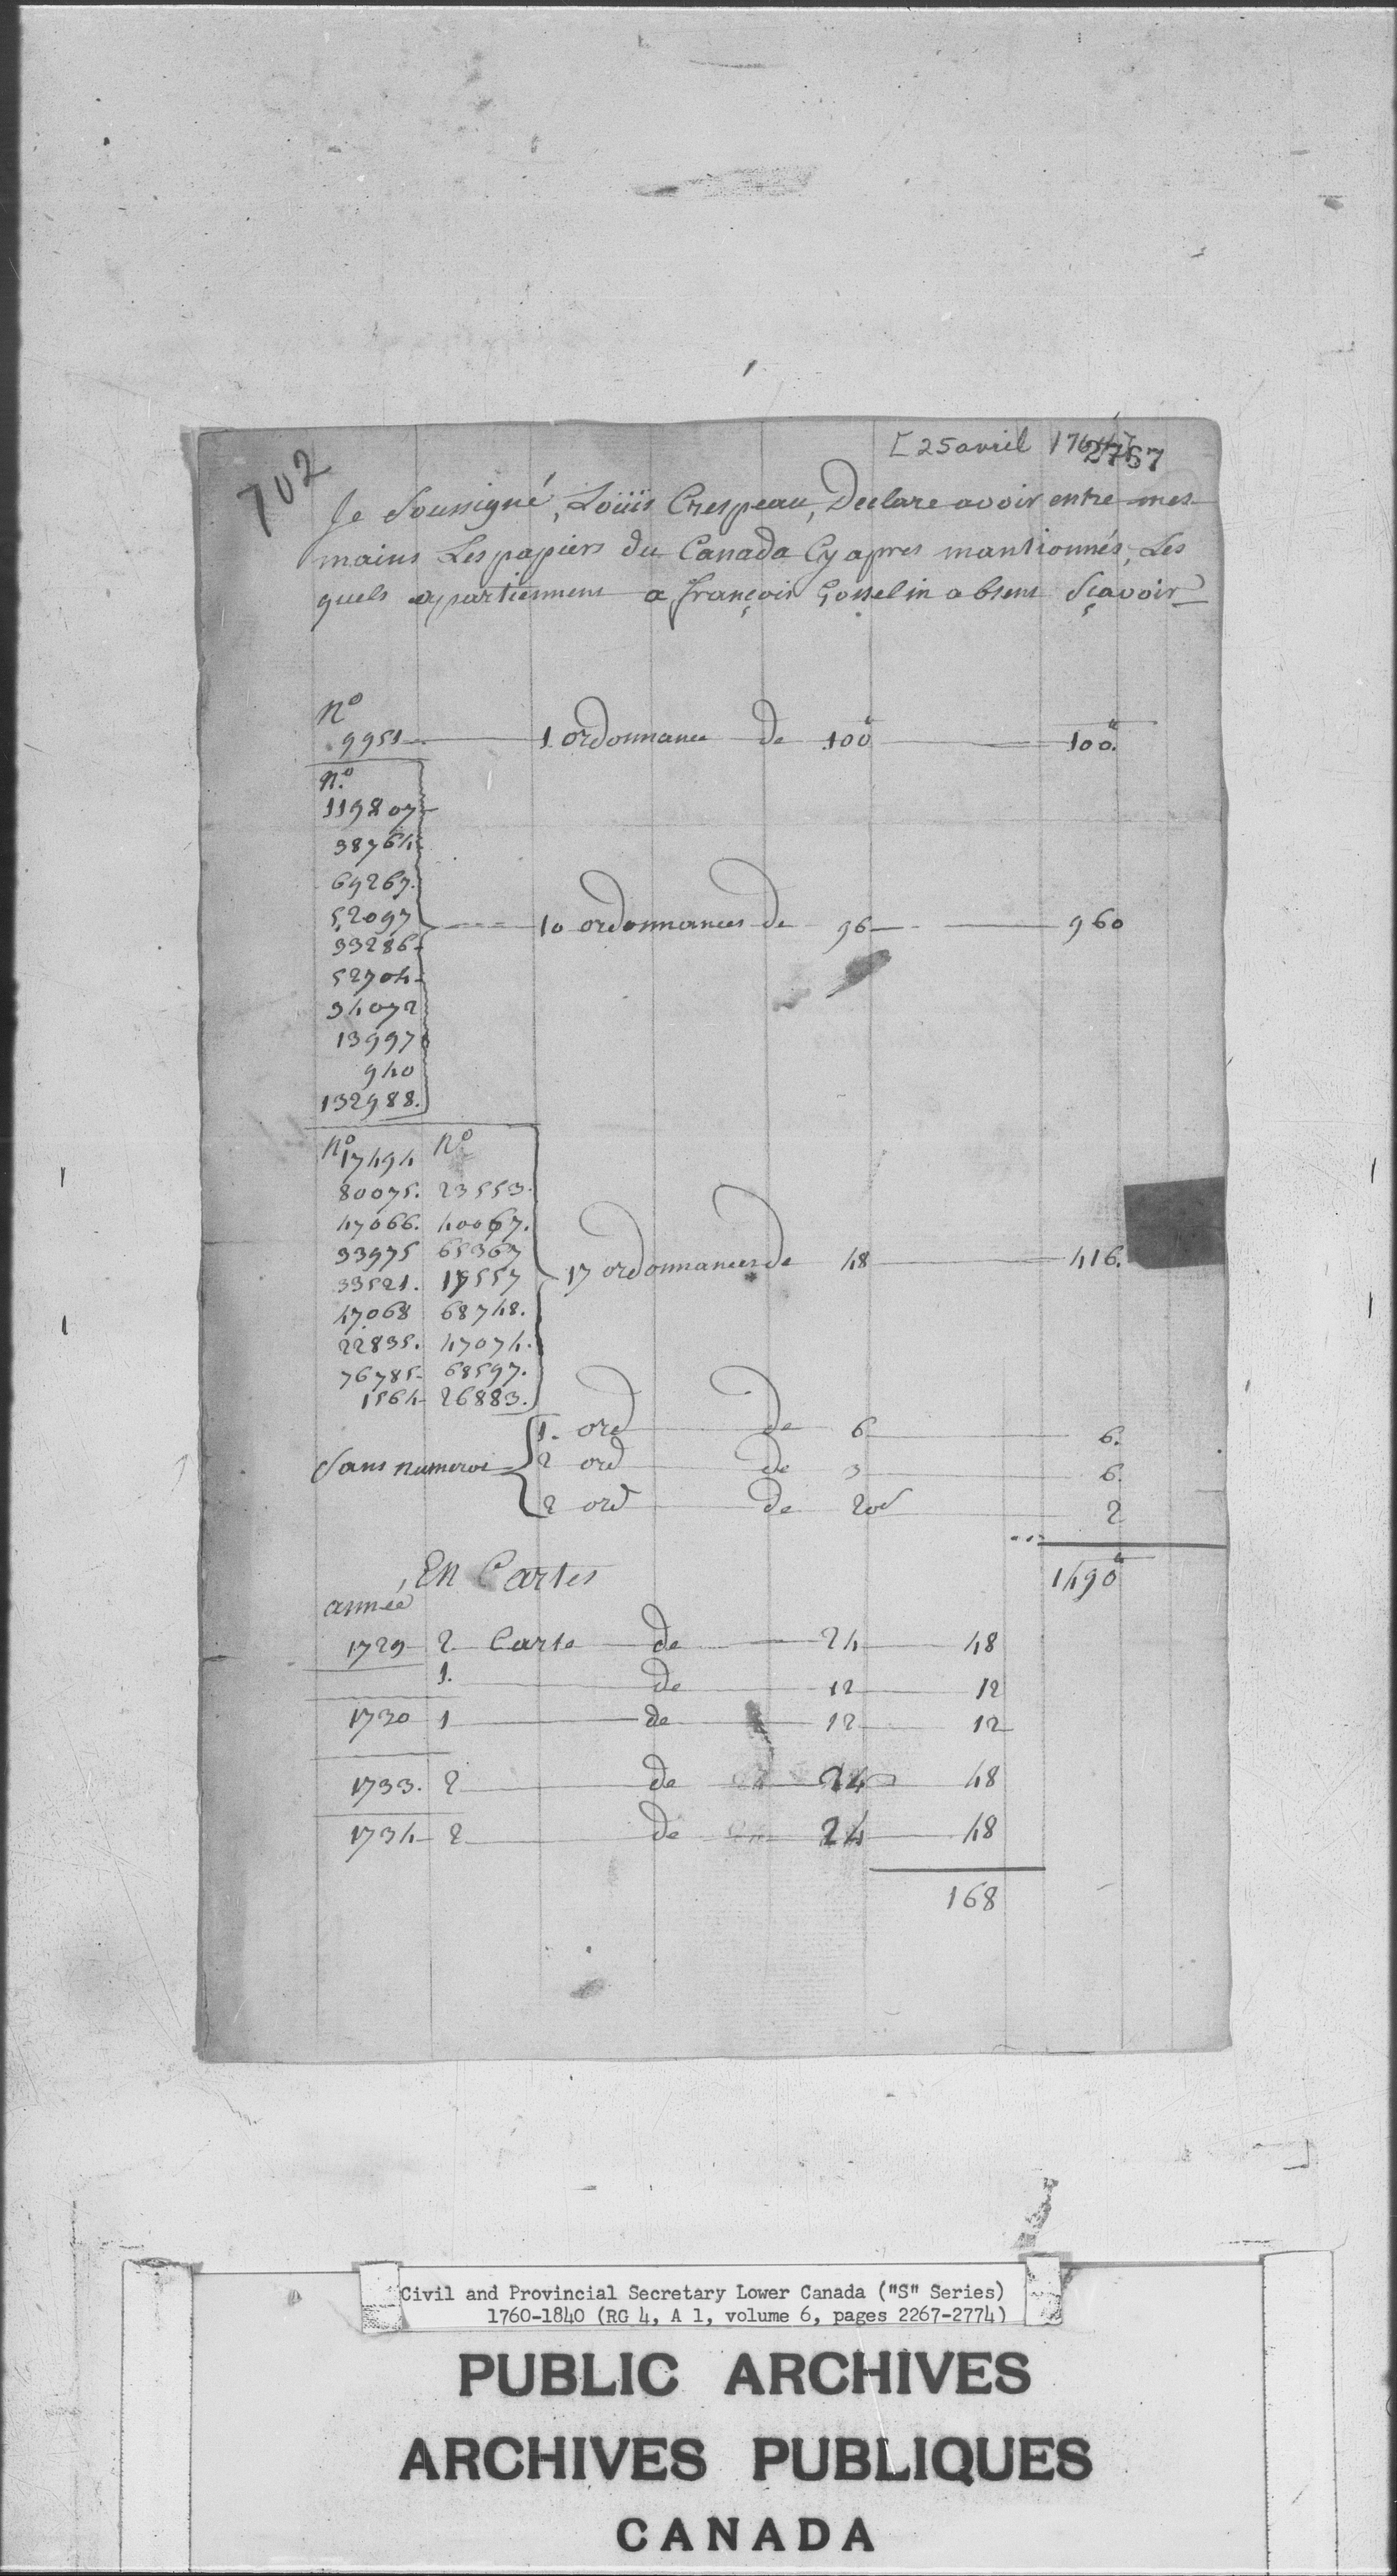 [25 avril 1764]
2767
702
Je Soussigné, Loüis Crespeau, Declare avoir entre mes
mains Les papiers du Canada Cy apres mantionnés, Les
quels apartiennent a françois Gosselin absent Sçavoir
No
9951 1 ordonnance de 100 100.
No.
119807
38764
69267.
52097 10 ordonnances de 96 960
33286
52704
34072
13997
940
132988.
No No
17494
80075. 23553.
47066. 40067.
33975 65367
33521. 17557 17 ordonnances de 48 416.
47068 68748.
22835. 47074.
76785 68597.
1564 26883.
1. ord de 6 6.
Sans numeros 2 ord de 3 6.
2 ord de 20s 2
1490
En Cartes
année
1729 2 Carte de 24 48
1. de 12 12
1730 1 de 12 12
1733. 2 de 24 48
1734 2 de 24 48
168
Civil and Provincial Secretary Lower Canada ("S" Series)
1760-1840 (RG 4, A 1, volume 6, pages 2267-2774)
PUBLIC ARCHIVES
ARCHIVES PUBLIQUES
CANADA